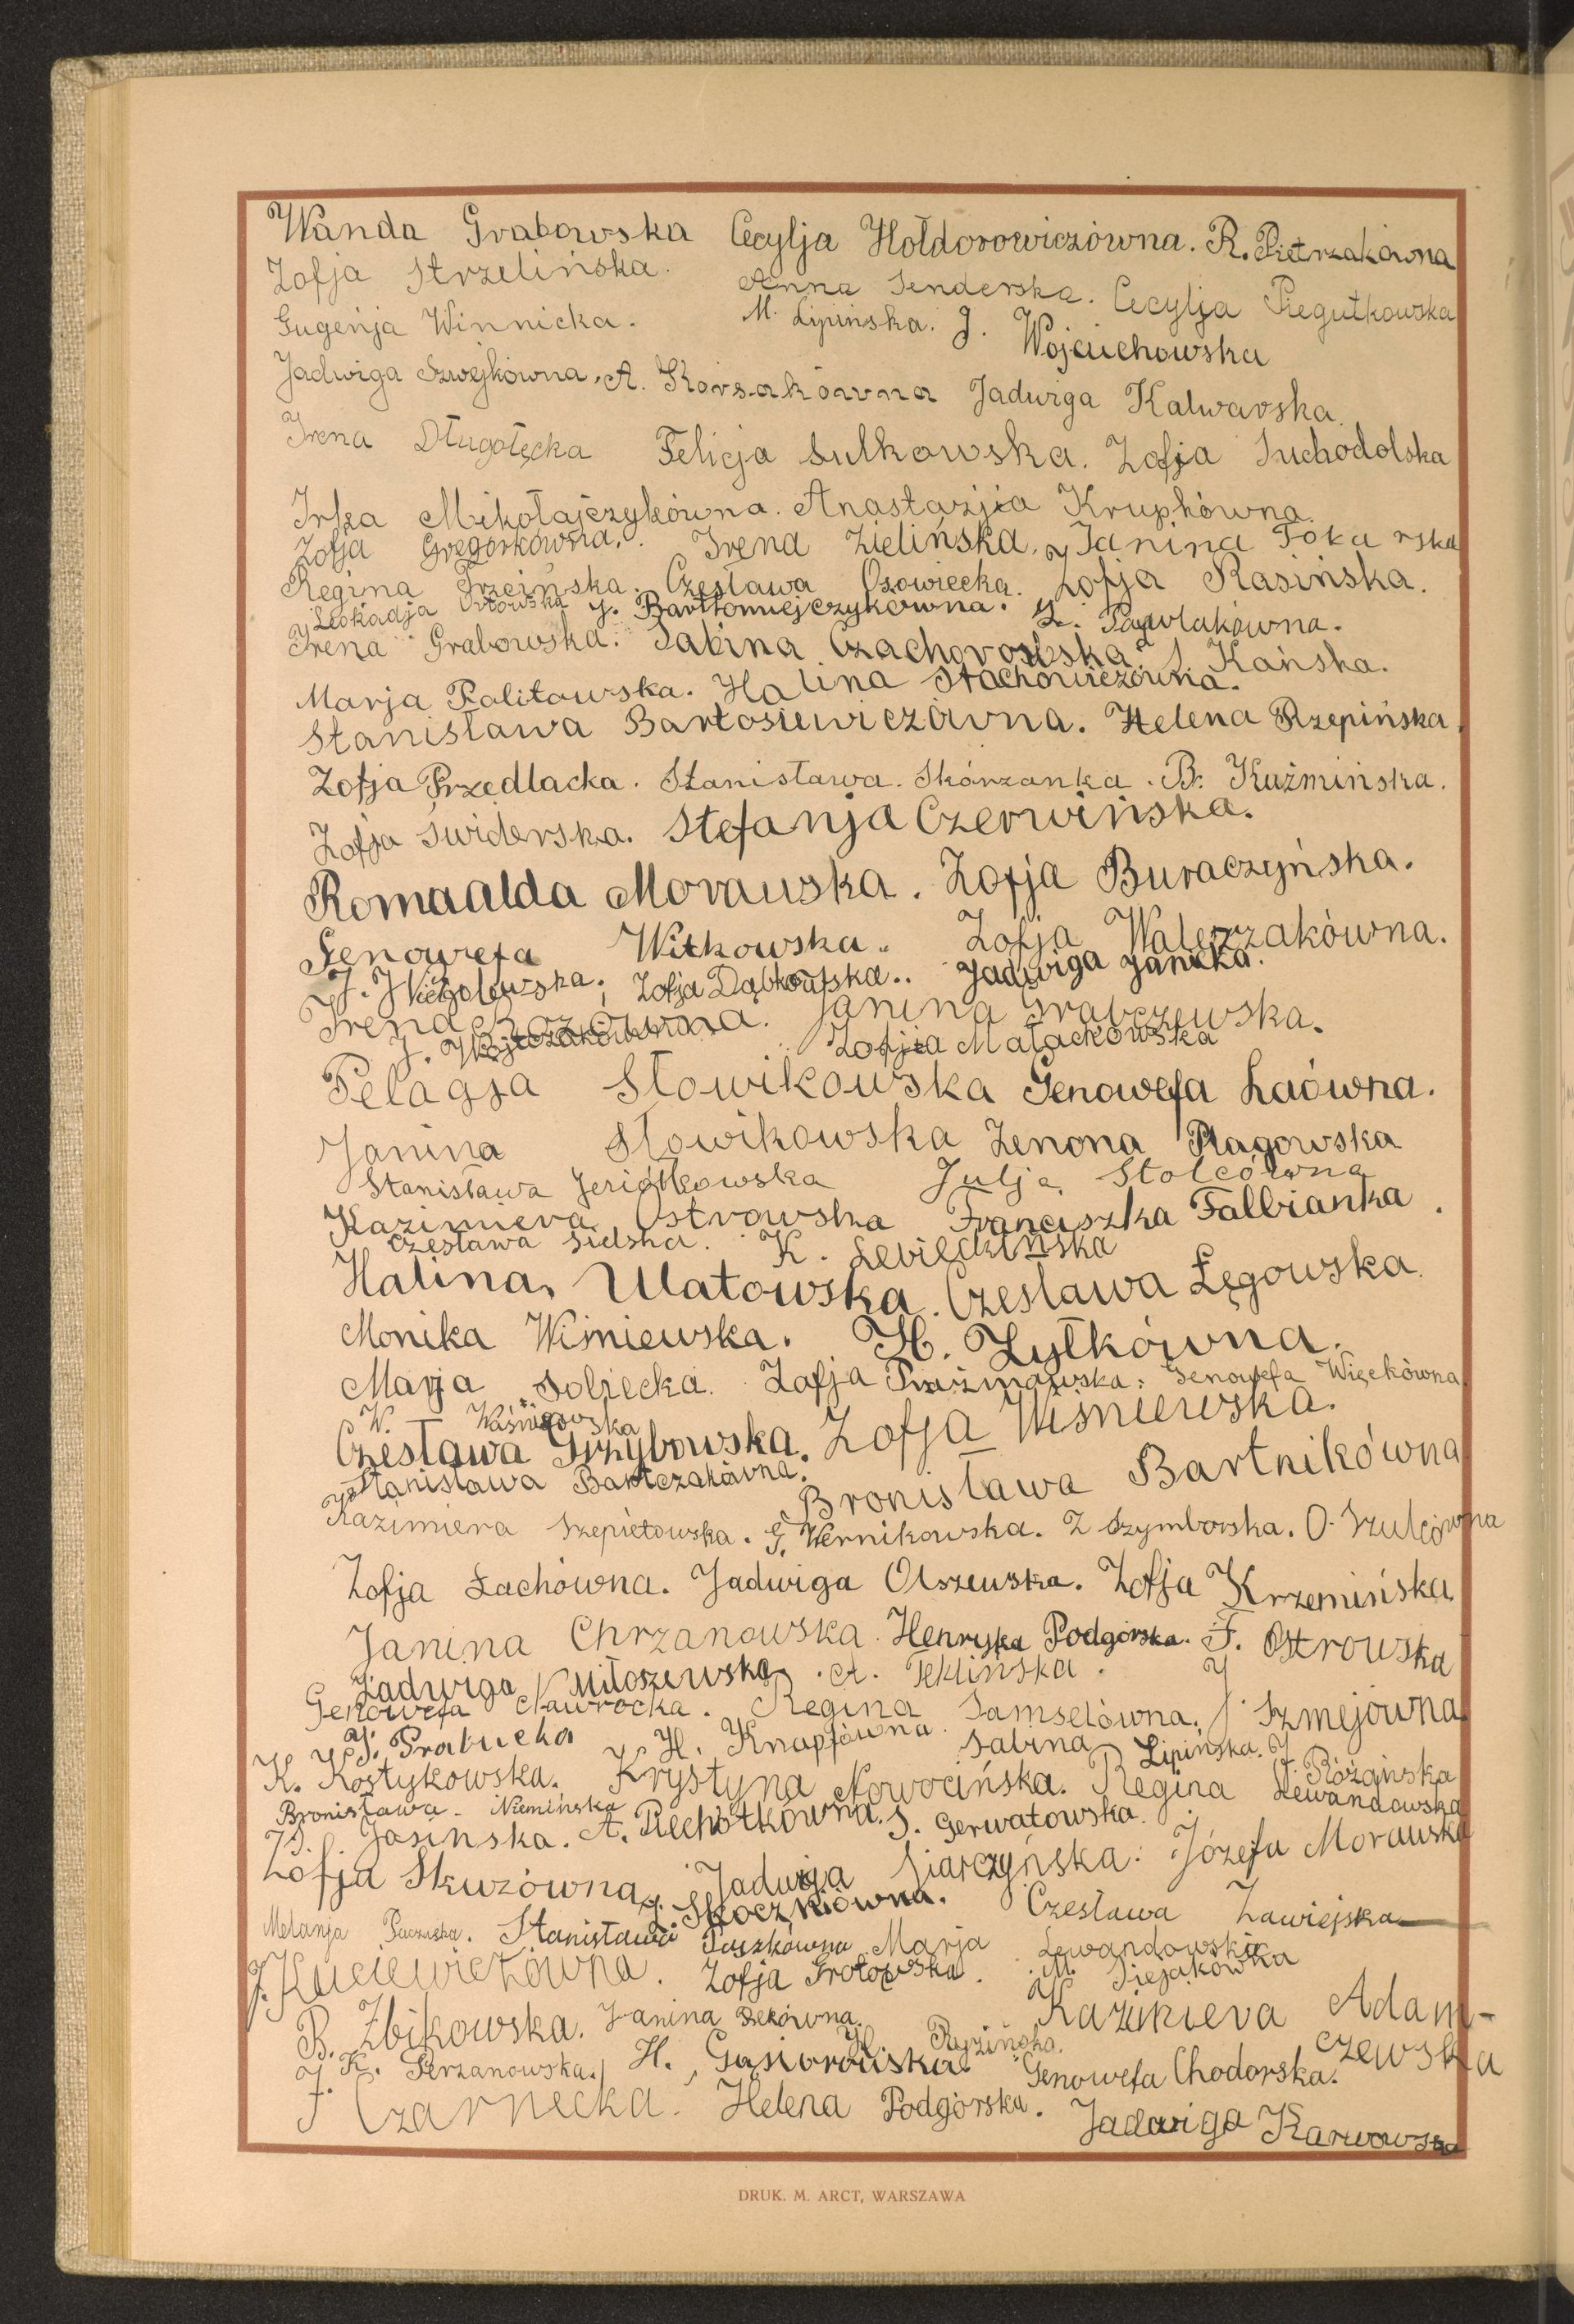 Wanda Grabowska Cecylja Hołdorowiczówna. R. Pietrzakówna
Zofja Strzelińska. Anna Senderska. Cecylja Piegutkowska
Eugenja Winnicka. M. Lipińska. J. Wojciechowska
Jadwiga Szwejkówna, A. Korsakówna Jadwiga Kalwarska.
Irena Długołęcka Felicja Sulkowska. Zofja Suchodolska
Irka Mikołajczykówna. Anastazja Krupkówna.
Zofja Gregorkówna. Irena Zielińska, Janina Tokarska
Regina Trzcińska. Czesława Osowiecka. Zofja Rasińska.
Leokadja Orłowska J. Bartłomiejczykówna. Pawlakówna.
Irena Grabowska. Sabina Czachorowska. J. Kańska.
Marja Politowska. Halina Stachowiczówna.
Stanisława Bartosiewiczówna. Helena Rzepińska.
Zofja Przedlacka. Stanisława Skórzanka. B. Kuźmińska.
Zofja Świderska. Stefanja Czerwińska.
Romualda Morawska. Zofja Buraczyńska.
Genowefa Witkowska. Zofja Walerzakówna.
J. Zofja Dąbkowska.. Jadwiga Janicka.
Irena Janina Grabczewska.
J. Wojtczakówna Zofja Małachowska
Pelagja Słowikowska Genowefa Łaówna.
Janina Słowikowska Zenona Płagowska
Stanisława Julja Stolcówna
Kazimiera Ostrowska Franciszka Falbianka.
Czesława Sielska. K.
Halina Ulatowska. Czesława Łęgowska.
Monika Wiśniewska. H. Żyłkówna.
Marja Solnecka. Zofja Prażmowska. Genowefa Więckówna
W. Wiśniewska
Czesława Grzybowska. Zofja Wiśniewska.
Stanisława Bartczakówna. Bronisława Bartnikówna
Kazimiera Szepietowska. G. Wernikowska. Z Szymborska. O. Szulcówna
Zofja Łachówna. Jadwiga Olszewska. Zofja Krzemińska
Janina Chrzanowska. Henryka Podgórska. F. Ostrowska
Jadwiga Miłoszewska. A. Teklińska.
Genowefa Nawrocka. Regina Samselówna. J. Szmejówna
J. Grabucka H. Knapfówna. Sabina Lipińska. J. Różańska
K. Kostykowska. Krystyna Nowocińska. Regina Lewandowska
Bronisława Niemińska
J. Jasińska. A. Piechotkówna. S. Gerwatowska.
Zofja Skuzówna, Jadwiga Siarczyńska. Józefa Morawska
J. Skoczkówna. Czesława Zawiejska
Melanja Paczuska. Stanisława Paszkówna Marja Lewandowska
J. Kuciewiczówna. Zofja Grotowska. M. Siejakówka
B. Zbikowska. Janina Bekówna. Kazimiera Adam-
czewska
K. Serzanowska. H. Gąsiorowska. H. Ryzińska. Genowefa Chodorska.
J. Czarnecka. Helena Podgórska. Jadwiga Karwowska
DRUK. M. ARCT, WARSZAWA